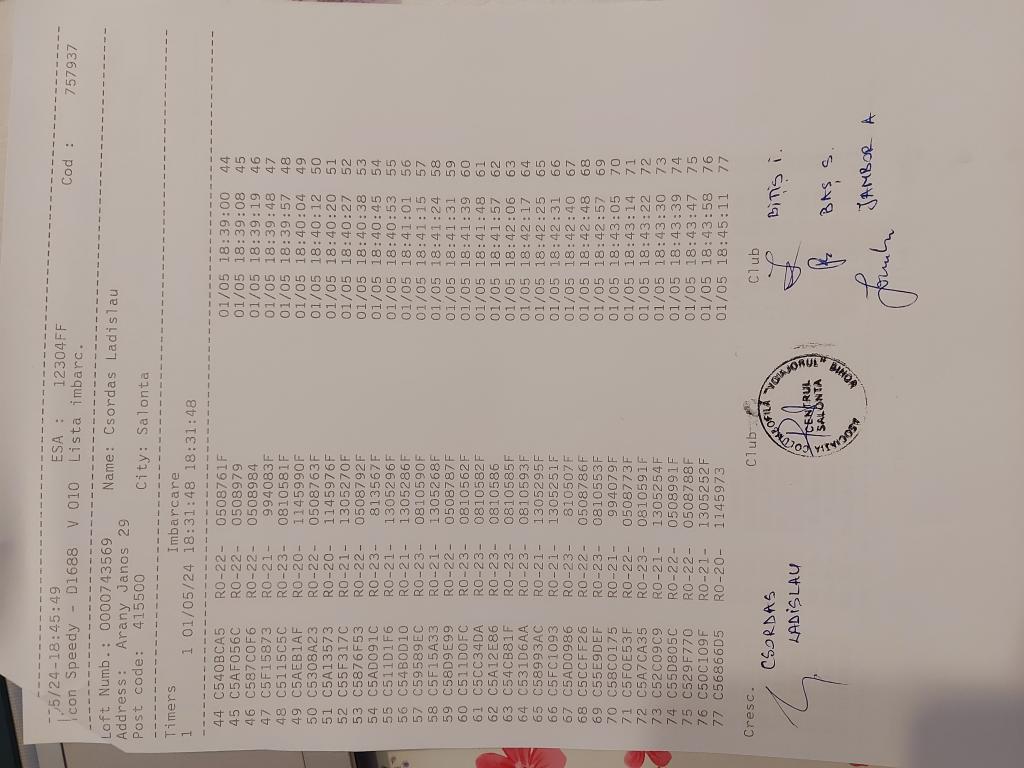 /5/24-18:45:49
Icon Speedy - D1688 V 010 ESA : 12304FF
Lista imbarc. Cod : 757937
Loft Numb.: 0000743569 Name: Csordas Ladislau
Address: Arany Janos 29
Post code: 415500 City: Salonta
Timers Imbarcare
1 1 01/05/24 18:31:48 18:31:48
44 C540BCA5 RO-22- 0508761F 01/05 18:39:00 44
45 C5AF056C RO-22- 0508979 01/05 18:39:08 45
46 C587C0F6 RO-22- 0508984 01/05 18:39:19 46
47 C5F15873 RO-21- 994083F 01/05 18:39:48 47
48 C5115C5C RO-23- 0810581F 01/05 18:39:57 48
49 C5AEB1AF RO-20- 1145990F 01/05 18:40:04 49
50 C5308A23 RO-22- 0508763F 01/05 18:40:12 50
51 C5A13573 RO-20- 1145976F 01/05 18:40:20 51
52 C55F317C RO-21- 1305270F 01/05 18:40:27 52
53 C5876F53 RO-22- 0508792F 01/05 18:40:38 53
54 C5AD091C RO-23- 813567F 01/05 18:40:45 54
55 C511D1F6 RO-21- 1305296F 01/05 18:40:53 55
56 C54B0D10 RO-21- 1305286F 01/05 18:41:01 56
57 C59589EC RO-23- 0810590F 01/05 18:41:15 57
58 C5F15A33 RO-21- 1305268F 01/05 18:41:24 58
59 C58D9E99 RO-22- 0508767F 01/05 18:41:31 59
60 C511D0FC RO-23- 0810562F 01/05 18:41:39 60
61 C5CC34DA RO-23- 0810582F 01/05 18:41:48 61
62 C5A12E86 RO-23- 0810586 01/05 18:41:57 62
63 C54CB81F RO-23- 0810585F 01/05 18:42:06 63
64 C531D6AA RO-23- 0810593F 01/05 18:42:17 64
65 C58993AC RO-21- 1305295F 01/05 18:42:25 65
66 C5FC1093 RO-21- 1305251F 01/05 18:42:31 66
67 C5AD0986 RO-23- 810507F 01/05 18:42:40 67
68 C5CCFF26 RO-22- 0508786F 01/05 18:42:48 68
69 C55E9DEF RO-23- 0810553F 01/05 18:42:57 69
70 C58C0175 RO-21- 994079F 01/05 18:43:05 70
71 C560E53F RO-22- 0508773F 01/05 18:43:14 71
72 C5A7CA35 RO-23- 0810591F 01/05 18:43:22 72
73 C52C09C9 RO-21- 1305254F 01/05 18:43:30 73
74 C55D805C RO-22- 0508691F 01/05 18:43:39 74
75 C529F770 RO-22- 0508788F 01/05 18:43:47 75
76 C50C109F RO-21- 1305252F 01/05 18:43:58 76
77 C56866D5 RO-20- 1145973 01/05 18:45:11 77
Cresc. Club Club
CSORDAS
LADISLAU
ASOCIATIA COLUMBOFILA "VOIAJORUL" BIHOR
CENTRUL
SALONTA
BITIȘ I.
BAȘ S.
JAMBOR A